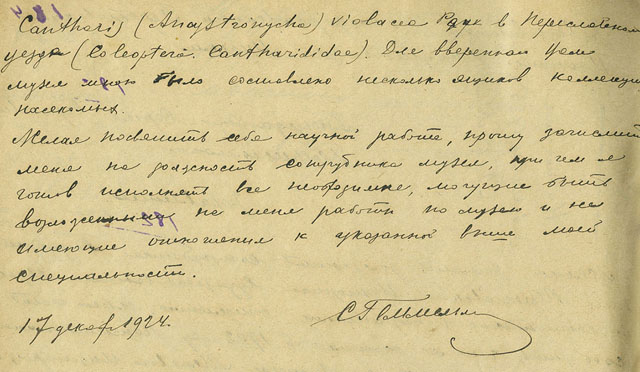 Cantharis (Ancystronycha) violacea Payk в Переславском
уезде (Coleoptera. Cantharididae). Для вверенного Вам
музея мною было составлено несколько ящиков коллекций
насекомых.
Желая посвятить себя научной работе, прошу зачислить
меня на должность сотрудника музея, при чем я
готов исполнять все необходимые, могущие быть
возложенными на меня работы по музею и не
имеющие отношения к указанной выше моей
специальности.
17 декаб. 1924.